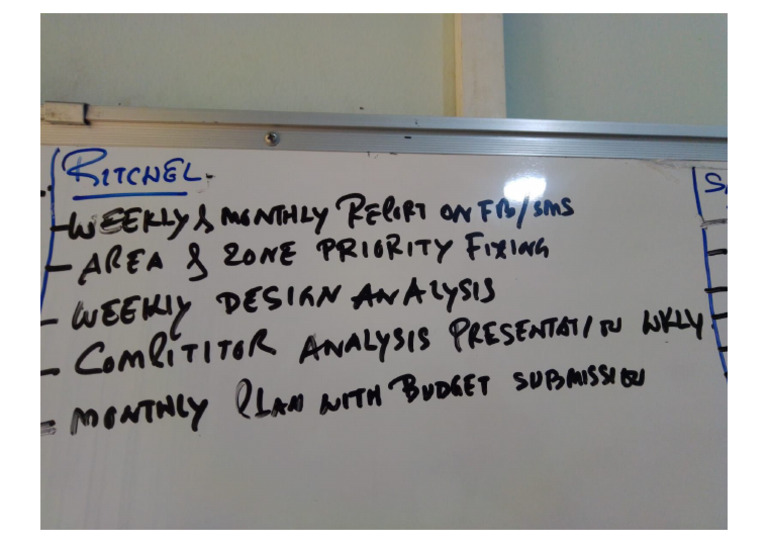 RITCHEL.
- WEEKLY & MONTHLY REPORT ON FB/SMS
- AREA & ZONE PRIORITY FIXING
- WEEKLY DESIGN ANALYSIS
- COMPITITOR ANALYSIS PRESENTATION WKLY
- MONTHLY PLAN WITH BUDGET SUBMISSION